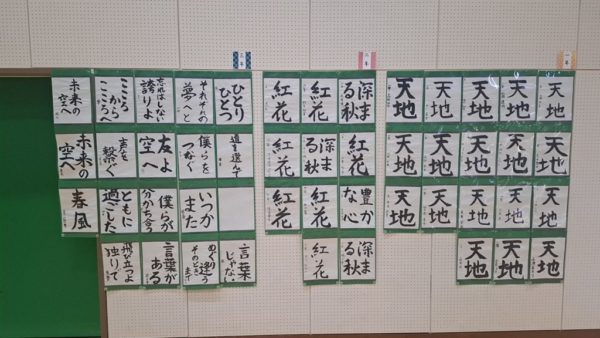 一年
天地
天地
天地
天地
天地
天地
天地
天地
天地
天地
天地
天地
天地
天地
天地
天地
天地
天地
二年
深ま
る秋
紅花
紅花
紅花
深ま
る秋
紅花
豊か
な心
紅花
紅花
深ま
る秋
紅花
三年
ひとり
ひとつ
それぞれの
夢へと
忘れはしない
誇りよ
こころ
から
こころへ
未来の
空へ
道を選んで
僕らを
つなぐ
友よ
空へ
声を
繋ぐ
未来の
空へ
いつか
また
僕らが
分かち合う
ともに
過した
春風
言葉
じゃない
めぐり逢う
そのときまで
言葉が
ある
飛び立つよ
独りで